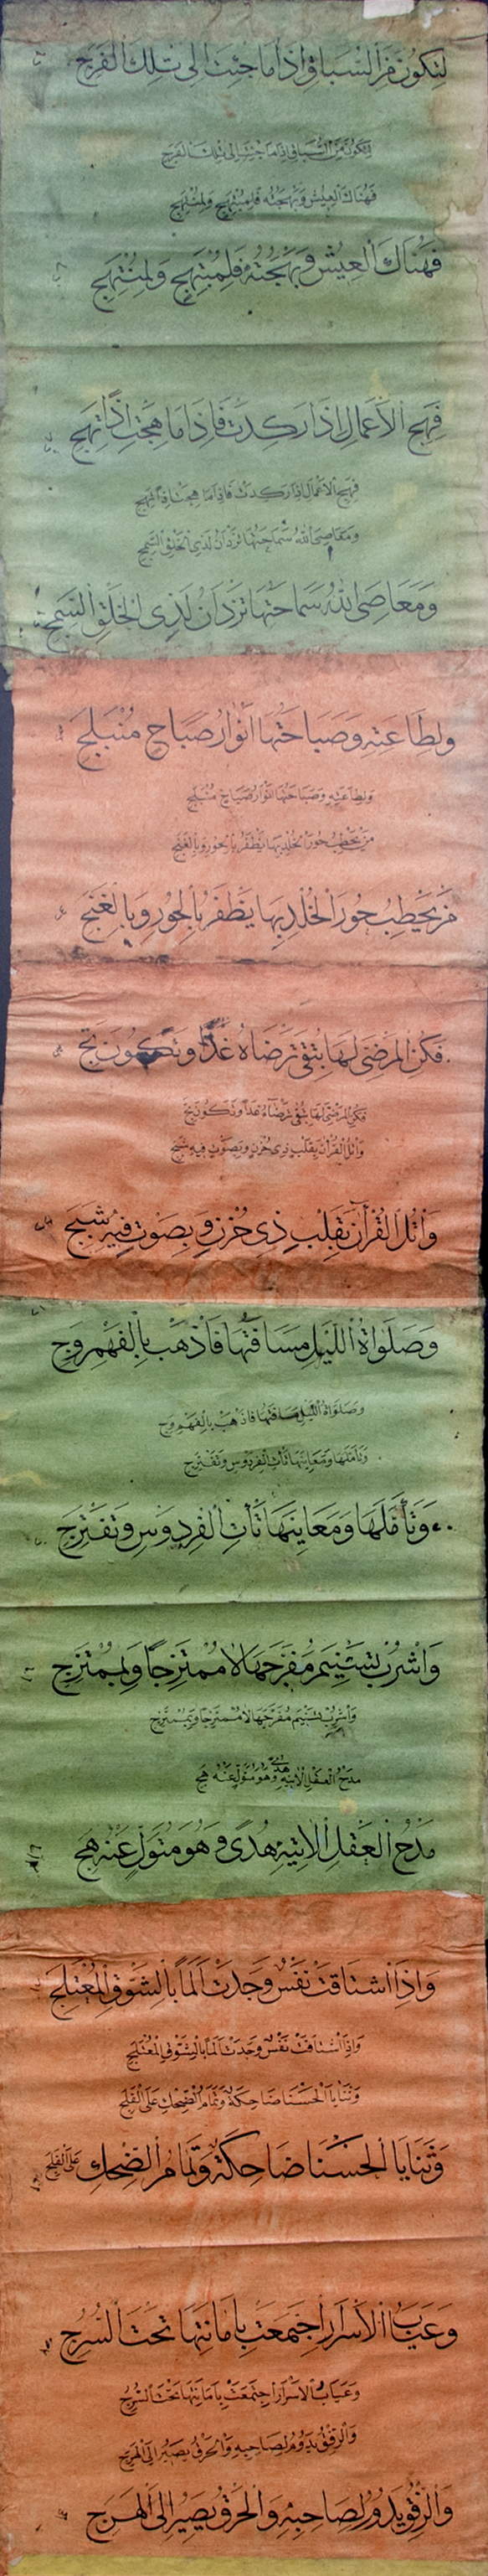 لِتَكُونَ مِنَ السُّبَاقِ اِذَا مَا جِئْتَ اِلٰى تِلْكَ الْفَرَجِ
لِتَكُونَ مِنَ السُّبَاقِ اِذَا مَا جِئْتَ اِلٰى تِلْكَ الْفَرَجِ
فَهُنَاكَ الْعِيْشُ وَبَهْجَتُهُ فَلِمُبْتَهِجٍ وَلِمُنْتَهِجٍ
فَهُنَاكَ الْعِيْشُ وَبَهْجَتُهُ فَلِمُبْتَهِجٍ وَلِمُنْتَهِجٍ
فَهِجِ الْاَعْمَالَ اِذَا رَكَدَتْ فَاِذَا مَا هِجْتَ اِذًا تَهِجِ
فَهِجِ الْاَعْمَالَ اِذَا رَكَدَتْ فَاِذَا مَا هِجْتَ اِذًا تَهِجِ
وَمَعَاصِى اللّٰهِ سَمَاجَتُهَا تَزْدَانُ لَذِى الْخُلُقِ السَّمِجِ
وَمَعَاصِى اللّٰهِ سَمَاجَتُهَا تَزْدَانُ لَذِى الْخُلُقِ السَّمِجِ
وَلِطَاعَتِهِ وَصَبَاحَتُهَا اَنْوَارُ صَبَاحٍ مُنْبَلِجِ
وَلِطَاعَتِهِ وَصَبَاحَتُهَا اَنْوَارُ صَبَاحٍ مُنْبَلِجِ
مَنْ يَخْطِبُ حُورَ الْخُلْدِ بِهَا يَظْفَرْ بِالْحُورِ وَبِالْغَنَجِ
مَنْ يَخْطِبُ حُورَ الْخُلْدِ بِهَا يَظْفَرْ بِالْحُورِ وَبِالْغَنَجِ
فَكُنِ الْمَرْضِىَّ لَهَا بِتُقًى تَرْضَاهُ غَدًا وَتَكُونُ نَجِ
فَكُنِ الْمَرْضِىَّ لَهَا بِتُقًى تَرْضَاهُ غَدًا وَتَكُونُ نَجِ
وَاتْلُ الْقُرْآنَ بِقَلْبٍ ذِى حُزْنٍ وَبِصَوْتٍ فِيْهِ شَجِ
وَاتْلُ الْقُرْآنَ بِقَلْبٍ ذِى حُزْنٍ وَبِصَوْتٍ فِيْهِ شَجِ
وَصَلَوَاةُ اللَّيْلِ مَسَافَتُهَا فَاذْهَبْ بِالْفَهْمِ وَجِ
وَصَلَوَاةُ اللَّيْلِ مَسَافَتُهَا فَاذْهَبْ بِالْفَهْمِ وَجِ
وَتَأَمَّلْهَا وَمَعَانِيَهَا تَأْتِ الْفِرْدَوْسَ وَتَفْتَرِجِ
وَتَأَمَّلْهَا وَمَعَانِيَهَا تَأْتِ الْفِرْدَوْسَ وَتَفْتَرِجِ
وَاشْرَبْ تَسْنِيْمَ مُفَجَّرِهَا لَا مُمْتَزِجًا وَبِمُمْتَزِجِ
وَاشْرَبْ تَسْنِيْمَ مُفَجَّرِهَا لَا مُمْتَزِجًا وَبِمُمْتَزِجِ
مَدْحُ الْعَقْلِ الْاٰتِيْهِ هُدًى وَهُوَ مُتَوَلٍّ عَنْهُ هَجِ
مَدْحُ الْعَقْلِ الْاٰتِيْهِ هُدًى وَهُوَ مُتَوَلٍّ عَنْهُ هَجِ
وَاِذَا اشْتَاقَتْ نَفْسٌ وَجَدَتْ اَلَمًا بِالشَّوْقِ الْمُعْتَلِجِ
وَاِذَا اشْتَاقَتْ نَفْسٌ وَجَدَتْ اَلَمًا بِالشَّوْقِ الْمُعْتَلِجِ
وَثَنَايَا الْحَسْنَا ضَاحِكَةٌ وَتَمَامُ الضِّحْكِ عَلَى الْفَلَجِ
وَثَنَايَا الْحَسْنَا ضَاحِكَةٌ وَتَمَامُ الضِّحْكِ عَلَى الْفَلَجِ
وَعِيَابُ الْاَسْرَارِ اجْتَمَعَتْ بِاَمَانَتِهَا تَحْتَ السُّرُجِ
وَعِيَابُ الْاَسْرَارِ اجْتَمَعَتْ بِاَمَانَتِهَا تَحْتَ السُّرُجِ
وَالرِّفْقُ يَدُومُ لِصَاحِبِهِ وَالْخُرْقُ يَصِيْرُ اِلَى الْهَرَجِ
وَالرِّفْقُ يَدُومُ لِصَاحِبِهِ وَالْخُرْقُ يَصِيْرُ اِلَى الْهَرَجِ